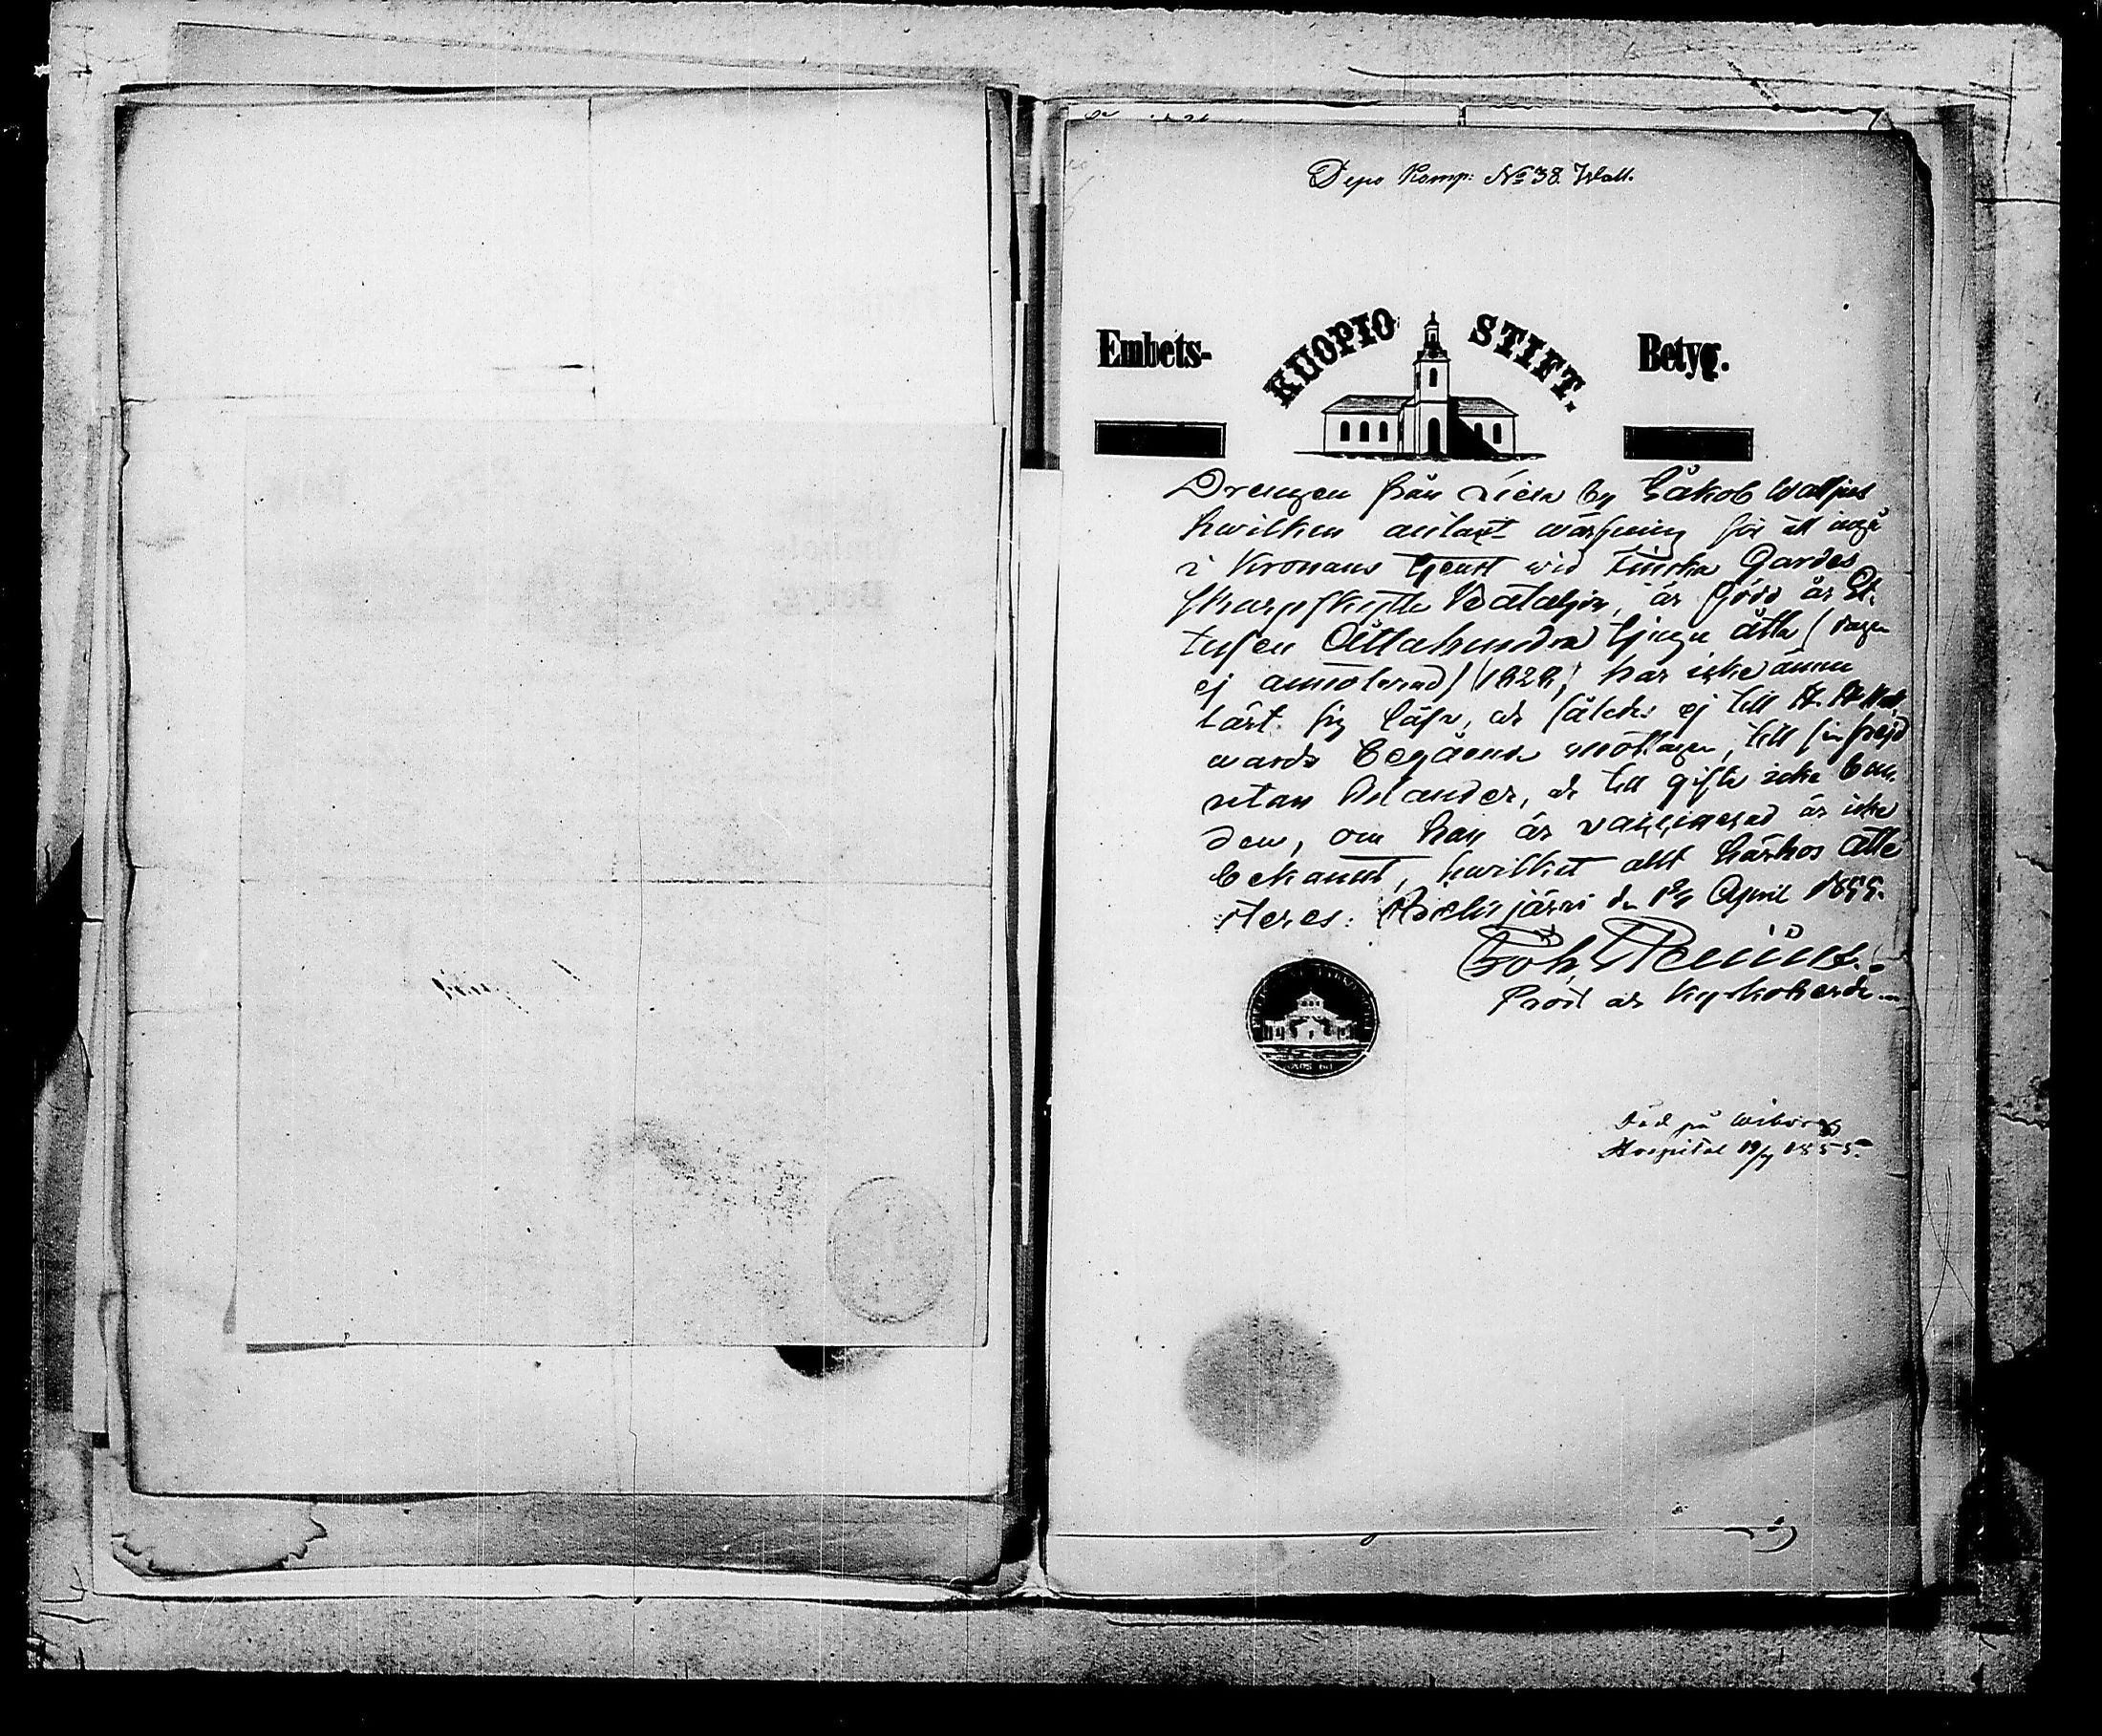 Depo Komp: No 38. Wall.
Embets- KUOPIO STIFT. Betyg.
Drengen från by Jakob Walljus
hwilken antagit wärfning för att ingå
i Kronans tjenst wid Finska Gardes
skarpskytte Bataljon, är född år Et
tusen Åttahundra tjugu åtta (dagen
ej annoterad) (1828), har icke ännu
lärt sig läsa, och således ej till H. H. Natt
wards begående mottagen, till sin frejd
utan klander, och till gifte icke bun
den, om han är vaccinerad är icke
bekannt, hwilket allt härhos atte
steres: Pielisjärvi den April 1855.
Joh.
Prost och Kyrkoherde
Död på Wiborgs
Hospital 19/7 1855.